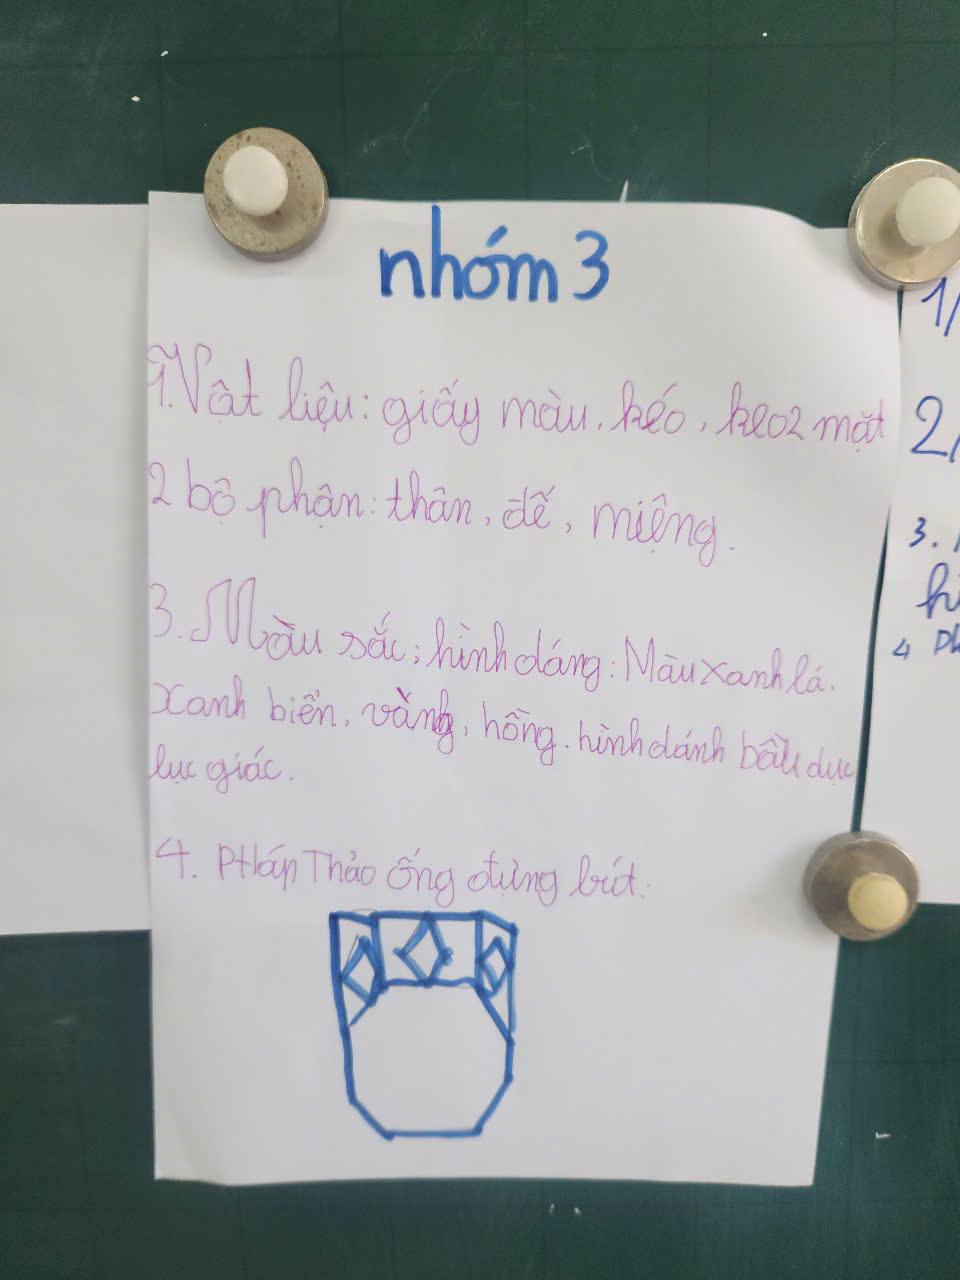 nhóm 3
1. Vật liệu: giấy màu, kéo, keo 2 mặt
2 bộ phận: thân, đế, miệng.
3. Màu sắc; hình dáng: Màu xanh lá.
xanh biển, vàng, hồng. hình dánh bầu dục
lục giác.
4. PHáp Thảo ống đựng bút.
1/
2/
3.
4